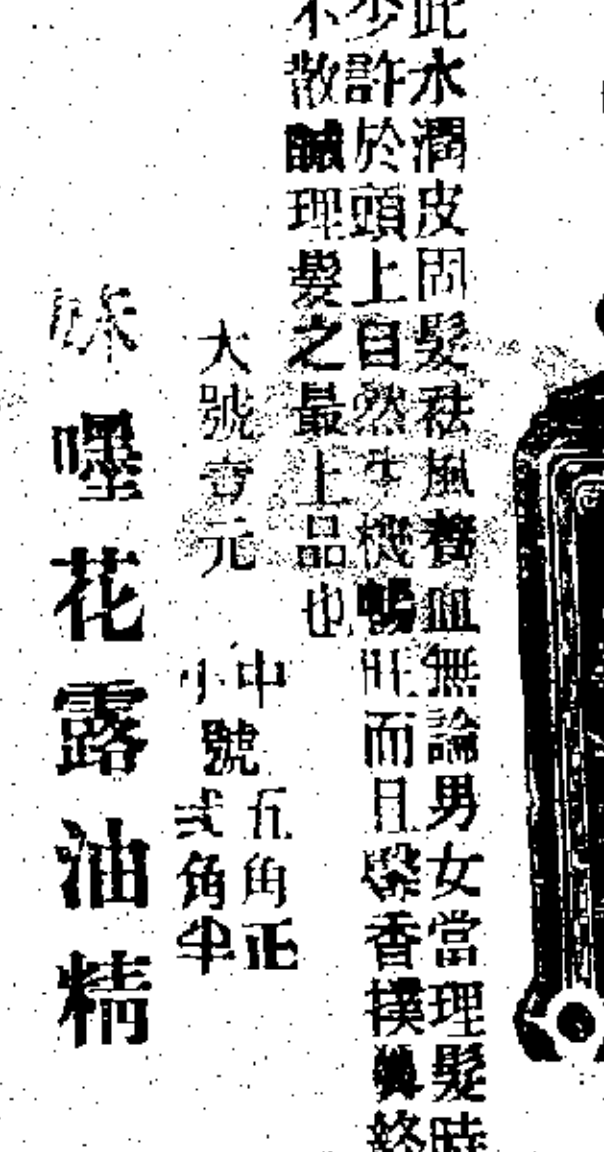 此水潤皮固髮祛風養血無論男女當理髮時
少許於頭上自然生機暢旺而且馨香撲鼻終
不散誠理髮之最上品也
大號壹元
中號五角正
小號弍角半
嚜花露油精